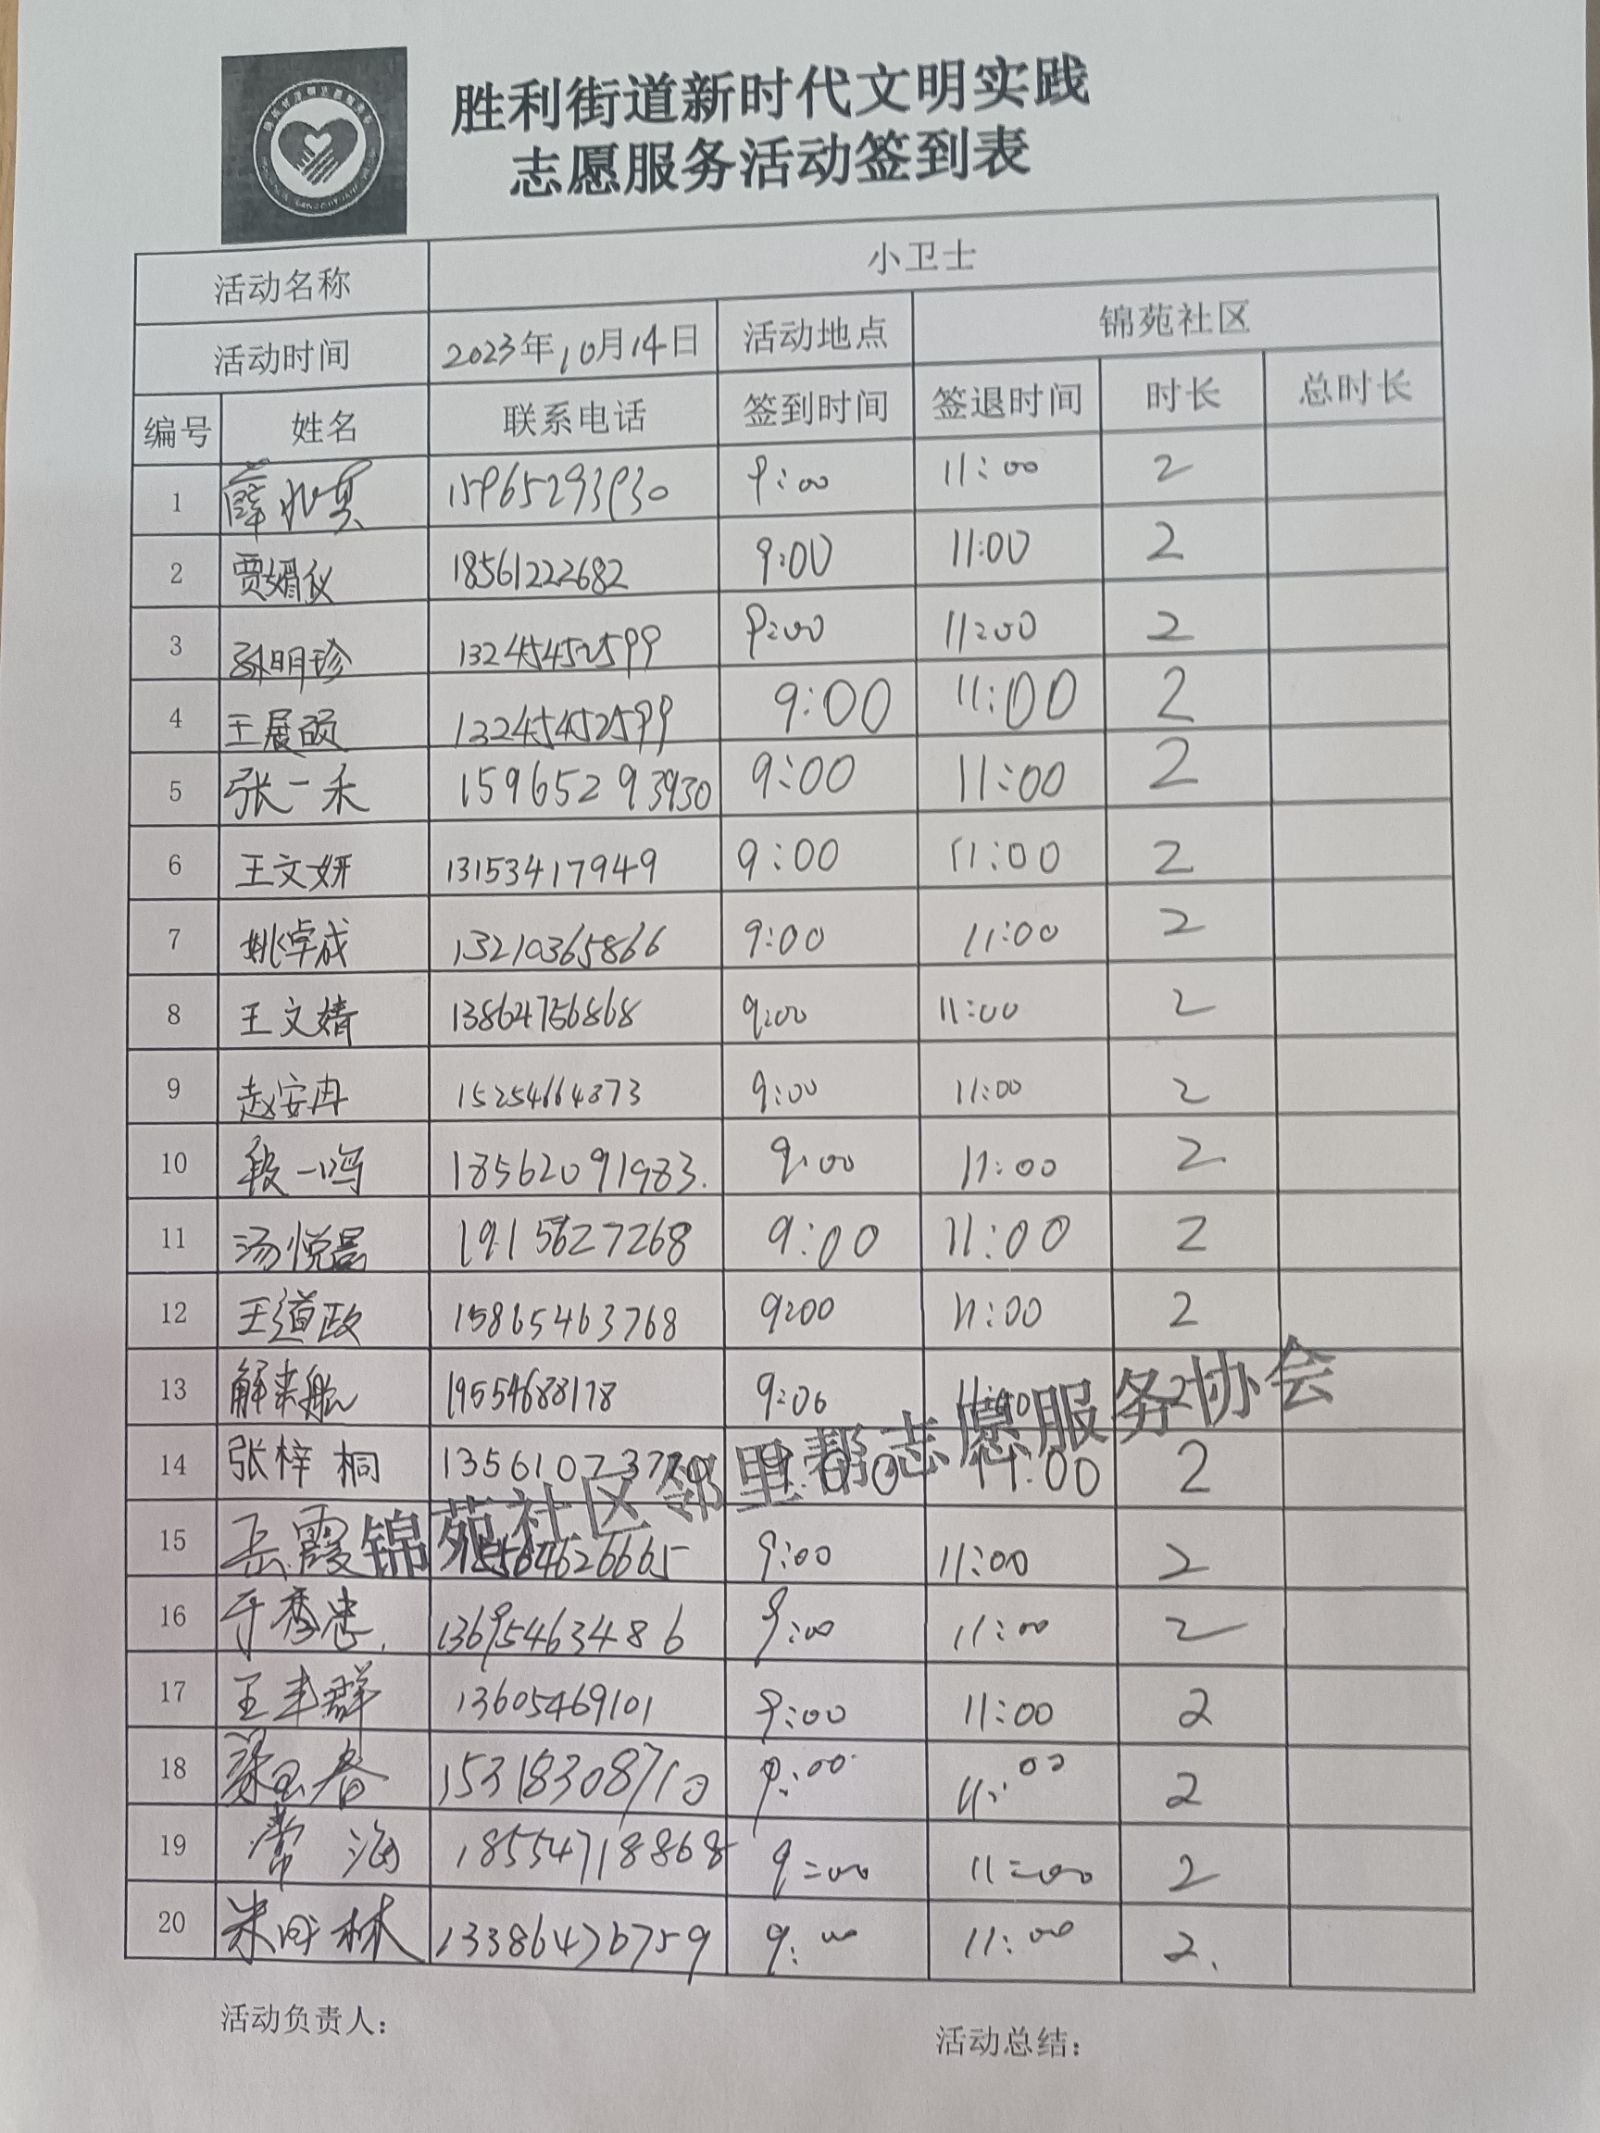 胜利街道新时代文明实践
志愿服务活动签到表
活动名称 小卫士
活动时间 2023年10月14日 活动地点 锦苑社区
编号 姓名 联系电话 签到时间 签退时间 时长 总时长
1 薛 15965293930 9:00 11:00 2
2 贾婿仪 18561222682 9:00 11:00 2
3 孙明珍 13245452599 9:00 11:00 2
4 王展硕 13245452599 9:00 11:00 2
5 张一禾 15965293930 9:00 11:00 2
6 王文妍 13153417949 9:00 11:00 2
7 姚卓成 13210365866 9:00 11:00 2
8 王文婧 13864756868 9:00 11:00 2
9 赵安冉 15254664373 9:00 11:00 2
10 段一鸣 18562091983. 9:00 11:00 2
11 汤悦晨 1915627268 9:00 11:00 2
12 王道政 15865463768 9:00 11:00 2
13 解来航 19554688178 9:00 11:00 2
14 张梓桐 9:00 11:00 2
15 岳霞 9:00 11:00 2
锦苑社区邻里帮志愿服务协会
16 于秀忠 13695463486 9:00 11:00 2
17 王丰群 13605469101 9:00 11:00 2
18 15318308710 9:00 11:00 2
19 常海 18554718868 9:00 11:00 2
20 林 13386476759 9:00 11:00 2.
活动负责人： 活动总结：